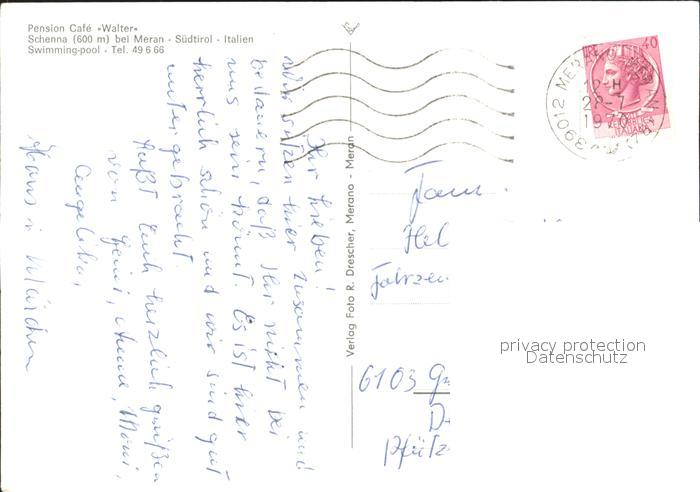 Pension Café »Walter«
Schenna (600 m) bei Meran - Südtirol - Italien
Swimming-pool - Tel. 49 6 66
Ihr Lieben!
Wir sitzen hier zusammen und
bedauern, daß Ihr nicht bei
uns sein könnt. Es ist hier
herrlich schön und wir sind gut
untergebracht.
Laßt Euch herzlich grüßen
von
Angelika,
Hans u.
Verlag Foto R. Drescher, Merano - Meran
40
39012 MERAN
12-H
19
ITALIANA
Fam.
Hel
Fahrzen
6103 Gr
D
Pfütz
privacy protection
Datenschutz